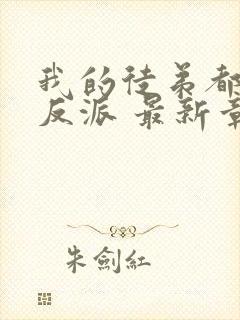 我的徒弟都
反派 最新章
朱劍紅